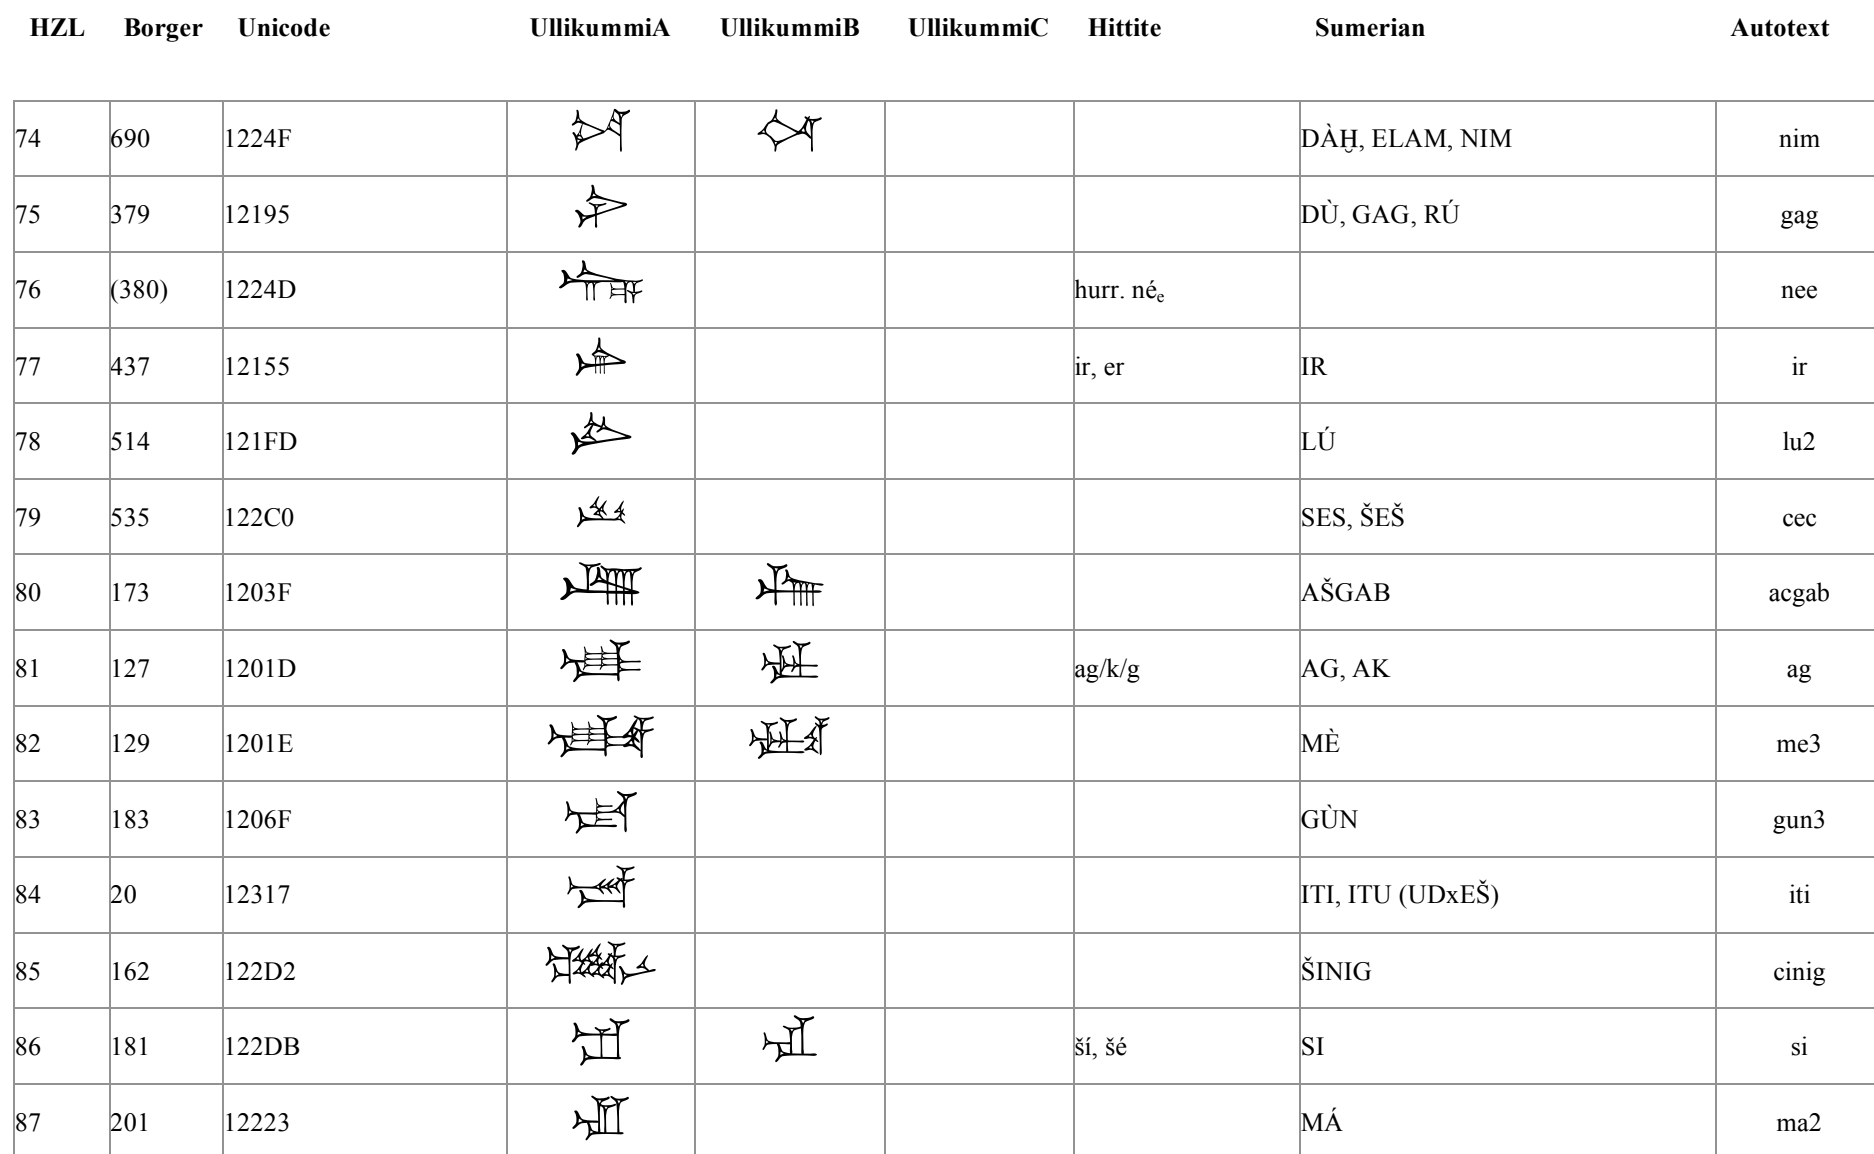 HZL Borger Unicode UllikummiA UllikummiB UllikummiC Hittite Sumerian Autotext
74 690 1224F 𒉏 𒉏 DÀḪ, ELAM, NIM nim
75 379 12195 𒆕 DÙ, GAG, RÚ gag
76 (380) 1224D 𒉍 hurr. néₑ nee
77 437 12155 𒅕 ir, er IR ir
78 514 121FD 𒇽 LÚ lu2
79 535 122C0 𒋀 SES, ŠEŠ cec
80 173 1203F 𒀿 𒀿 AŠGAB acgab
81 127 1201D 𒀝 𒀝 ag/k/g AG, AK ag
82 129 1201E 𒀞 𒀞 MÈ me3
83 183 1206F 𒁯 GÙN gun3
84 20 12317 𒌗 ITI, ITU (UDxEŠ) iti
85 162 122D2 𒋒 ŠINIG cinig
86 181 122DB 𒋛 𒋛 ší, šé SI si
87 201 12223 𒈣 MÁ ma2